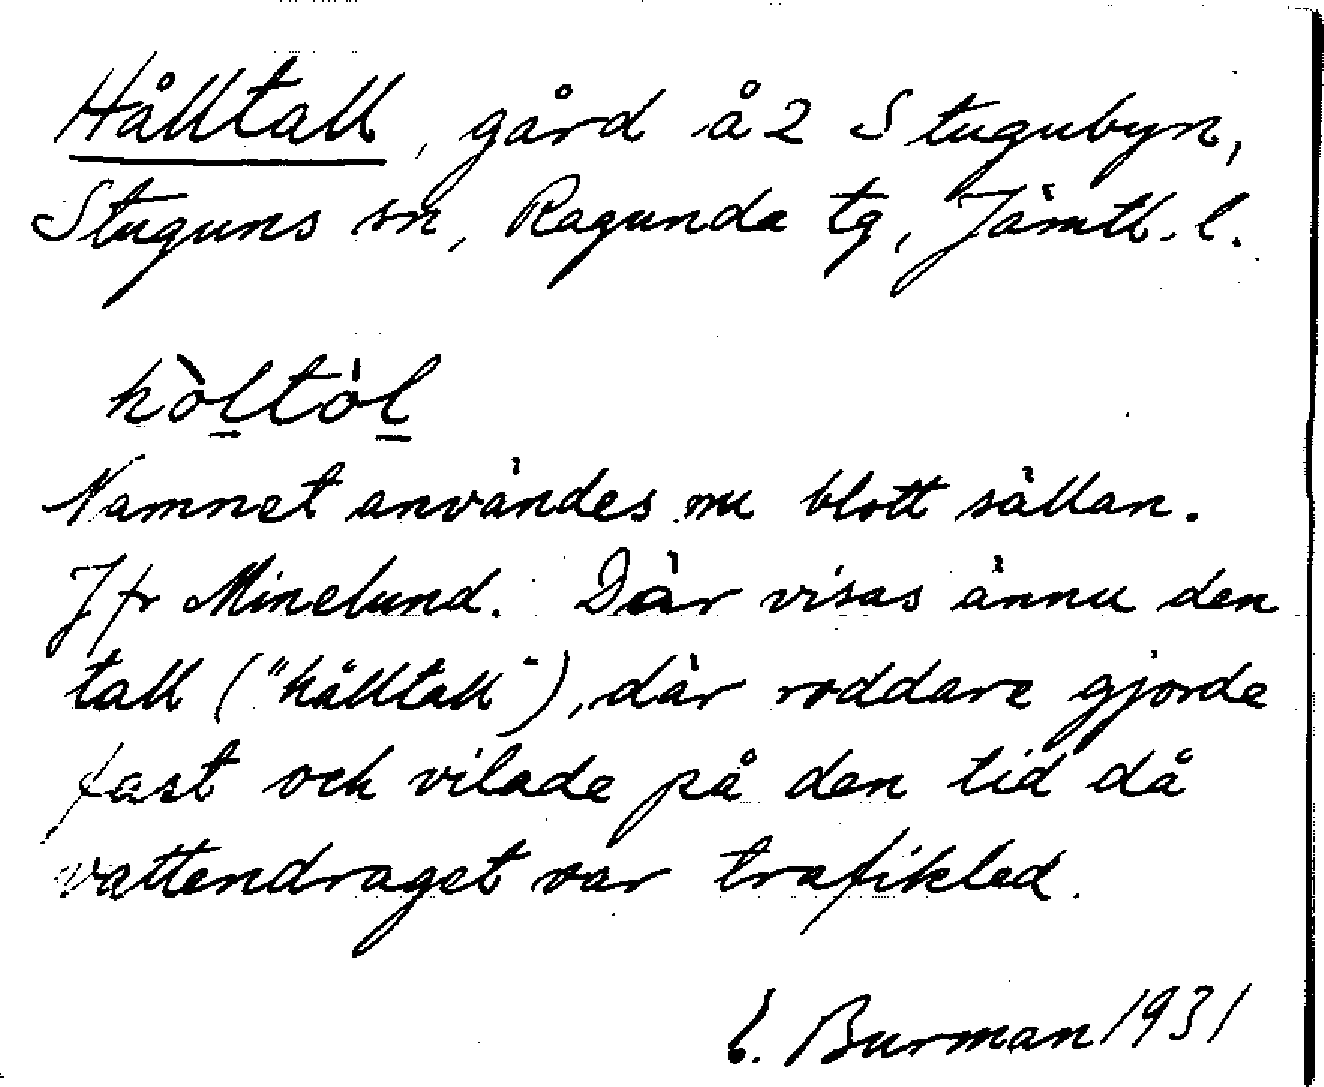 Hålltall, gård å 2 Stugubyn,
Stuguns sn, Ragunda tg, Jämtl. l.
hòltòl
Namnet användes nu blott sällan.
Jfr Minelund. Där visas ännu den
tall ("hålltall"), där roddare gjorde
fast och vilade på den tid då
vattendraget var trafikled.
Burman 1931